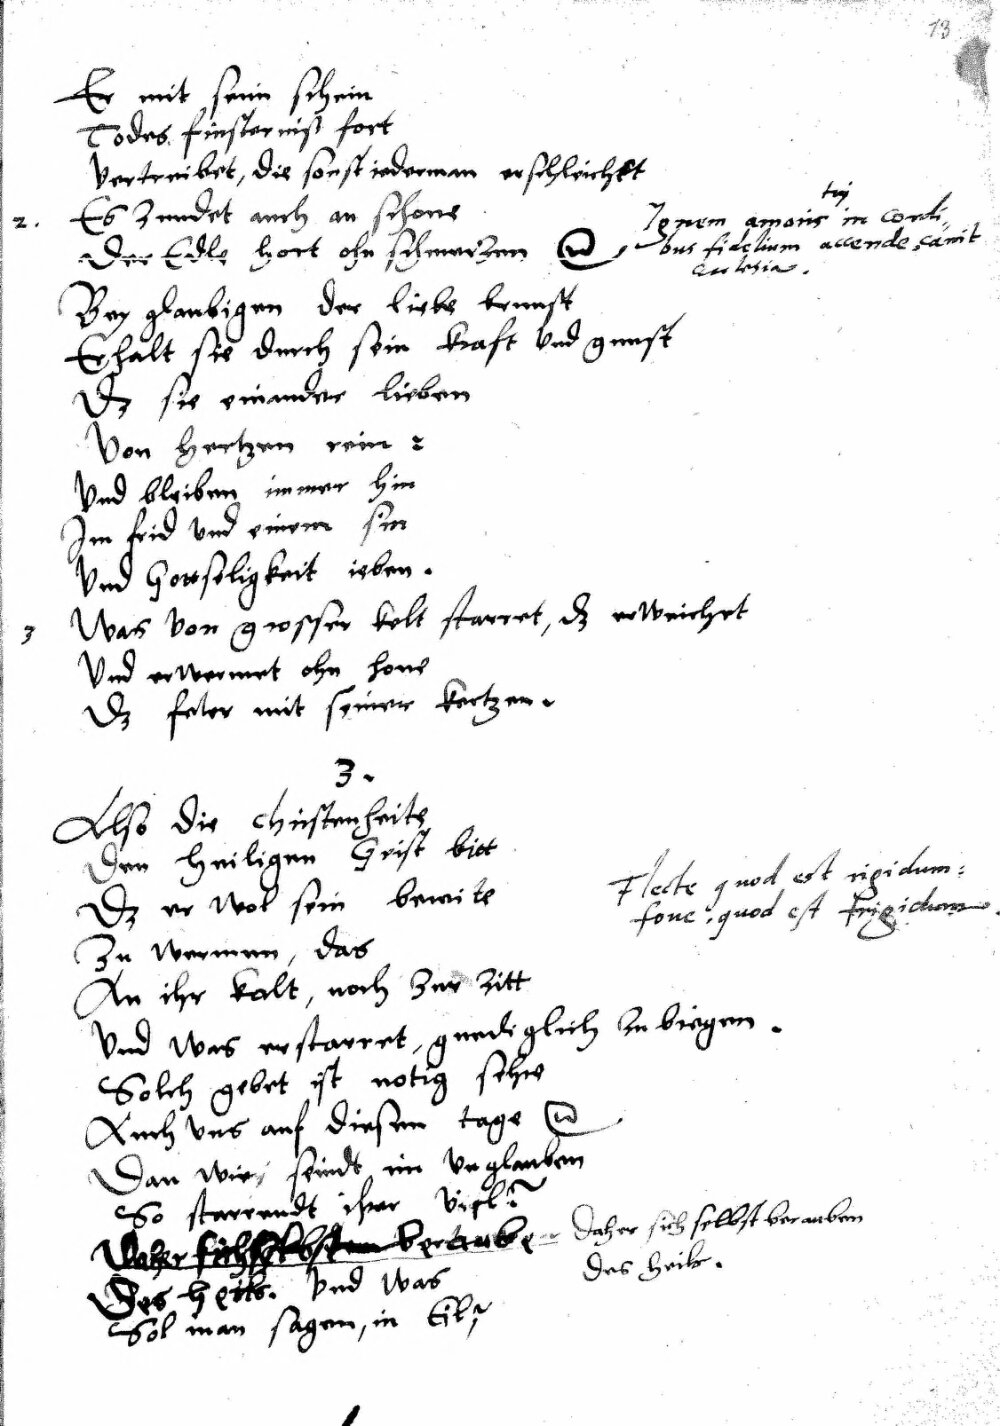 13
Er mit seim schein
Todes finsternist fort
vertreibet, die sonst iederman erschleichet
2. Es zundet auch an schone
Der Edle hort ohn schmertzen
tui
Ignem amoris in cordi-
bus fidelium accende, canit
ecclesia.
Bey glaubigen der liebe brunst
Erhalt sie durch sein kraft und gunst
Dz sie einander lieben
Von hertzen rein
Vnd bleiben immer hin
Im frid vnd einem sin
Vnd Gottseligkeit ieben.
3 Was von grosser kelt starret, dz erweichet
Vnd erwermet ohn hone
Dz feter mit seiner kertzen.
3.
Also die christenheite
Den heiligen Geist bitt
Dz er wol sein bereite
Zu wermen, das
An ihr kalt, noch zur zitt
Vnd was erstarret, gnediglich zu biegen.
Flecte quod est rigidum:
foue, quod est frigidum.
Solch gebet ist notig sehe
Auch vns auf diesem tage
Dan wir seindt im vnglauben
So starrendt ihrer viel
Daher sich selbsten beraube
Daher sich selbst berauben
des heils.
Des heils. Vnd was
Sol man sagen, in Eil